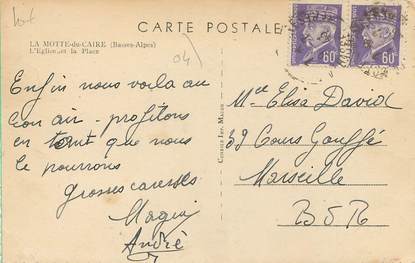 CARTE POSTALE
LA MOTTE-du-CAIRE (Basses-Alpes)
L'Eglise et la Place
04
Enfin nous voila au
bon air - profitons
en tant que nous
le pourrons
Grosses caresses
Magui
André
Mlle Elisa David
39 Cours Gouffé
Marseille
B D R
60c
60c